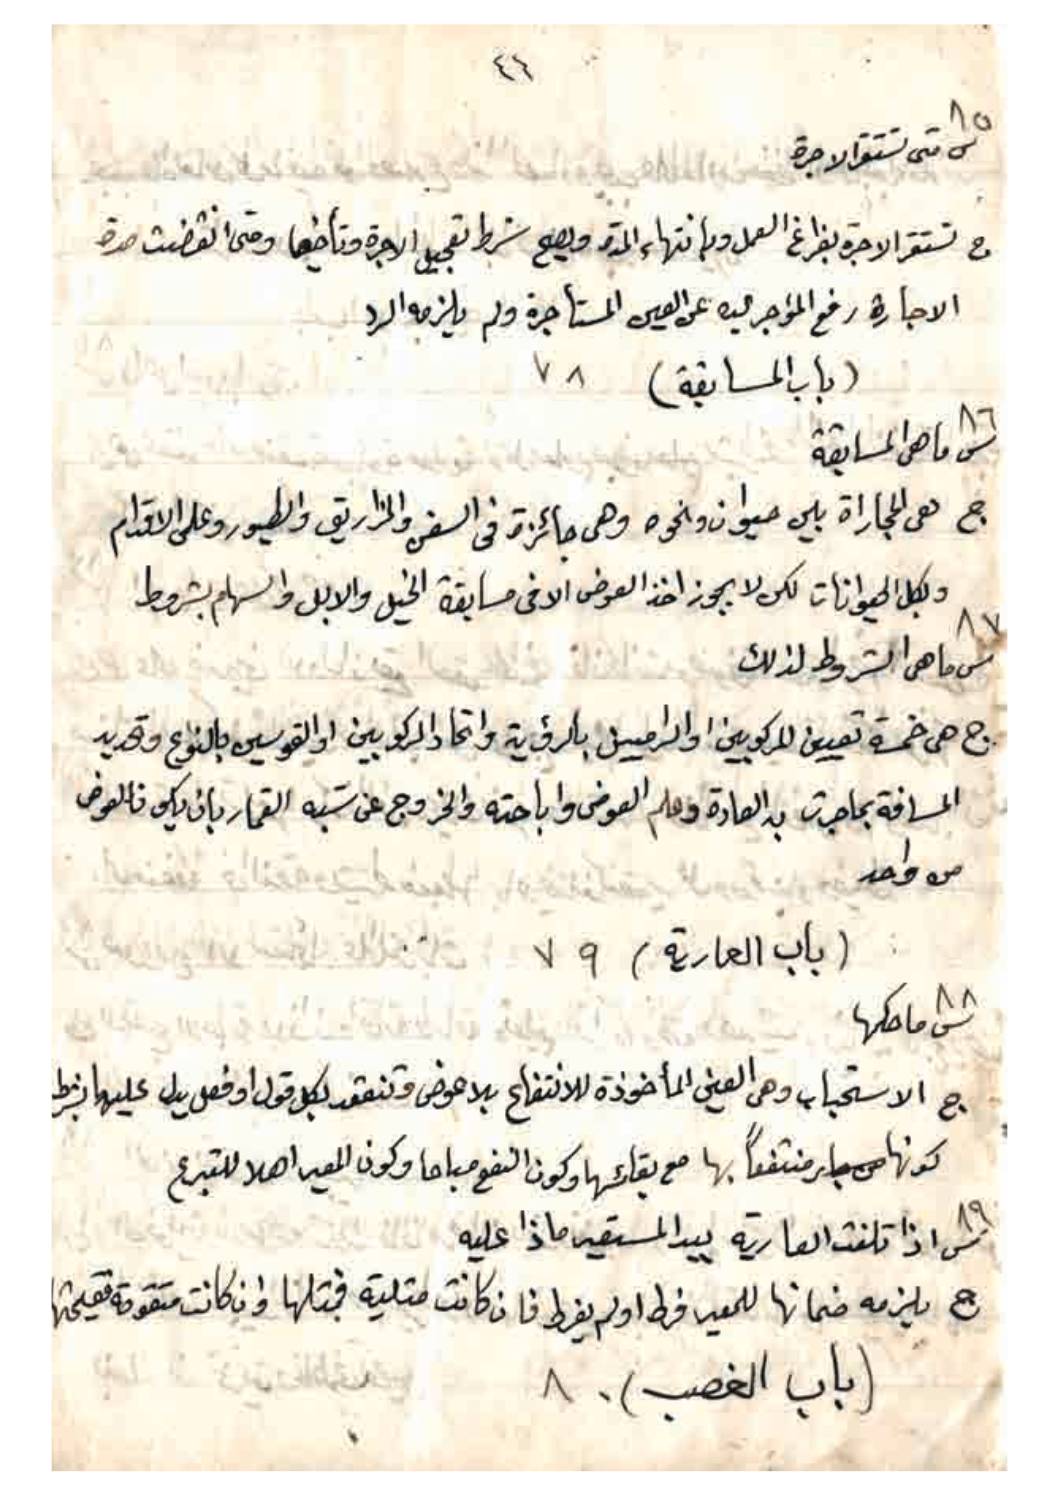 ٤٦
٨٥
س متى تستقر الاجرة
ج تستقر الاجرة بفراغ العمل وبانتهاء المدة ويصح شرط تعجيل الاجرة وتأخيرها ومتى انقضت مدة
الاجارة رفع المؤجر يده عن العين المستأجرة ولم يلزمه الرد
(باب المسابقة) ٧٨
٨٦
س ما هي المسابقة
ج هي المجاراة بين حيوان ونحوه وهي جائزة في السفن والمزاريق والطيور وعلى الاقدام
وبكل الحيوانات لكن لا يجوز اخذ العوض الا في مسابقة الخيل والابل والسهام بشروط
٨٧
س ما هي الشروط لذلك
ج هي خمسة تعيين المركوبين او الراميين بالرؤية واتحاد المركوبين او القوسين بالنوع وتحديد
المسافة بما جرت به العادة وعلم العوض واباحته والخروج عن شبه القمار بان يكون العوض
من واحد
(باب العارية) ٧٩
٨٨
س ما حكمها
ج الاستحباب وهي العين المأخوذة للانتفاع بلا عوض وتنعقد بكل قول او فعل يدل عليها بشرط
كونها منتفعاً بها مع بقائها وكون النفع مباحا وكون المعير اهلا للتبرع
٨٩
س اذا تلفت العارية بيد المستعير ماذا عليه
ج يلزمه ضمانها للمعير فرط او لم يفرط فان كانت مثلية فبمثلها وان كانت متقومة فقيمتها
(باب الغصب) ٨٠